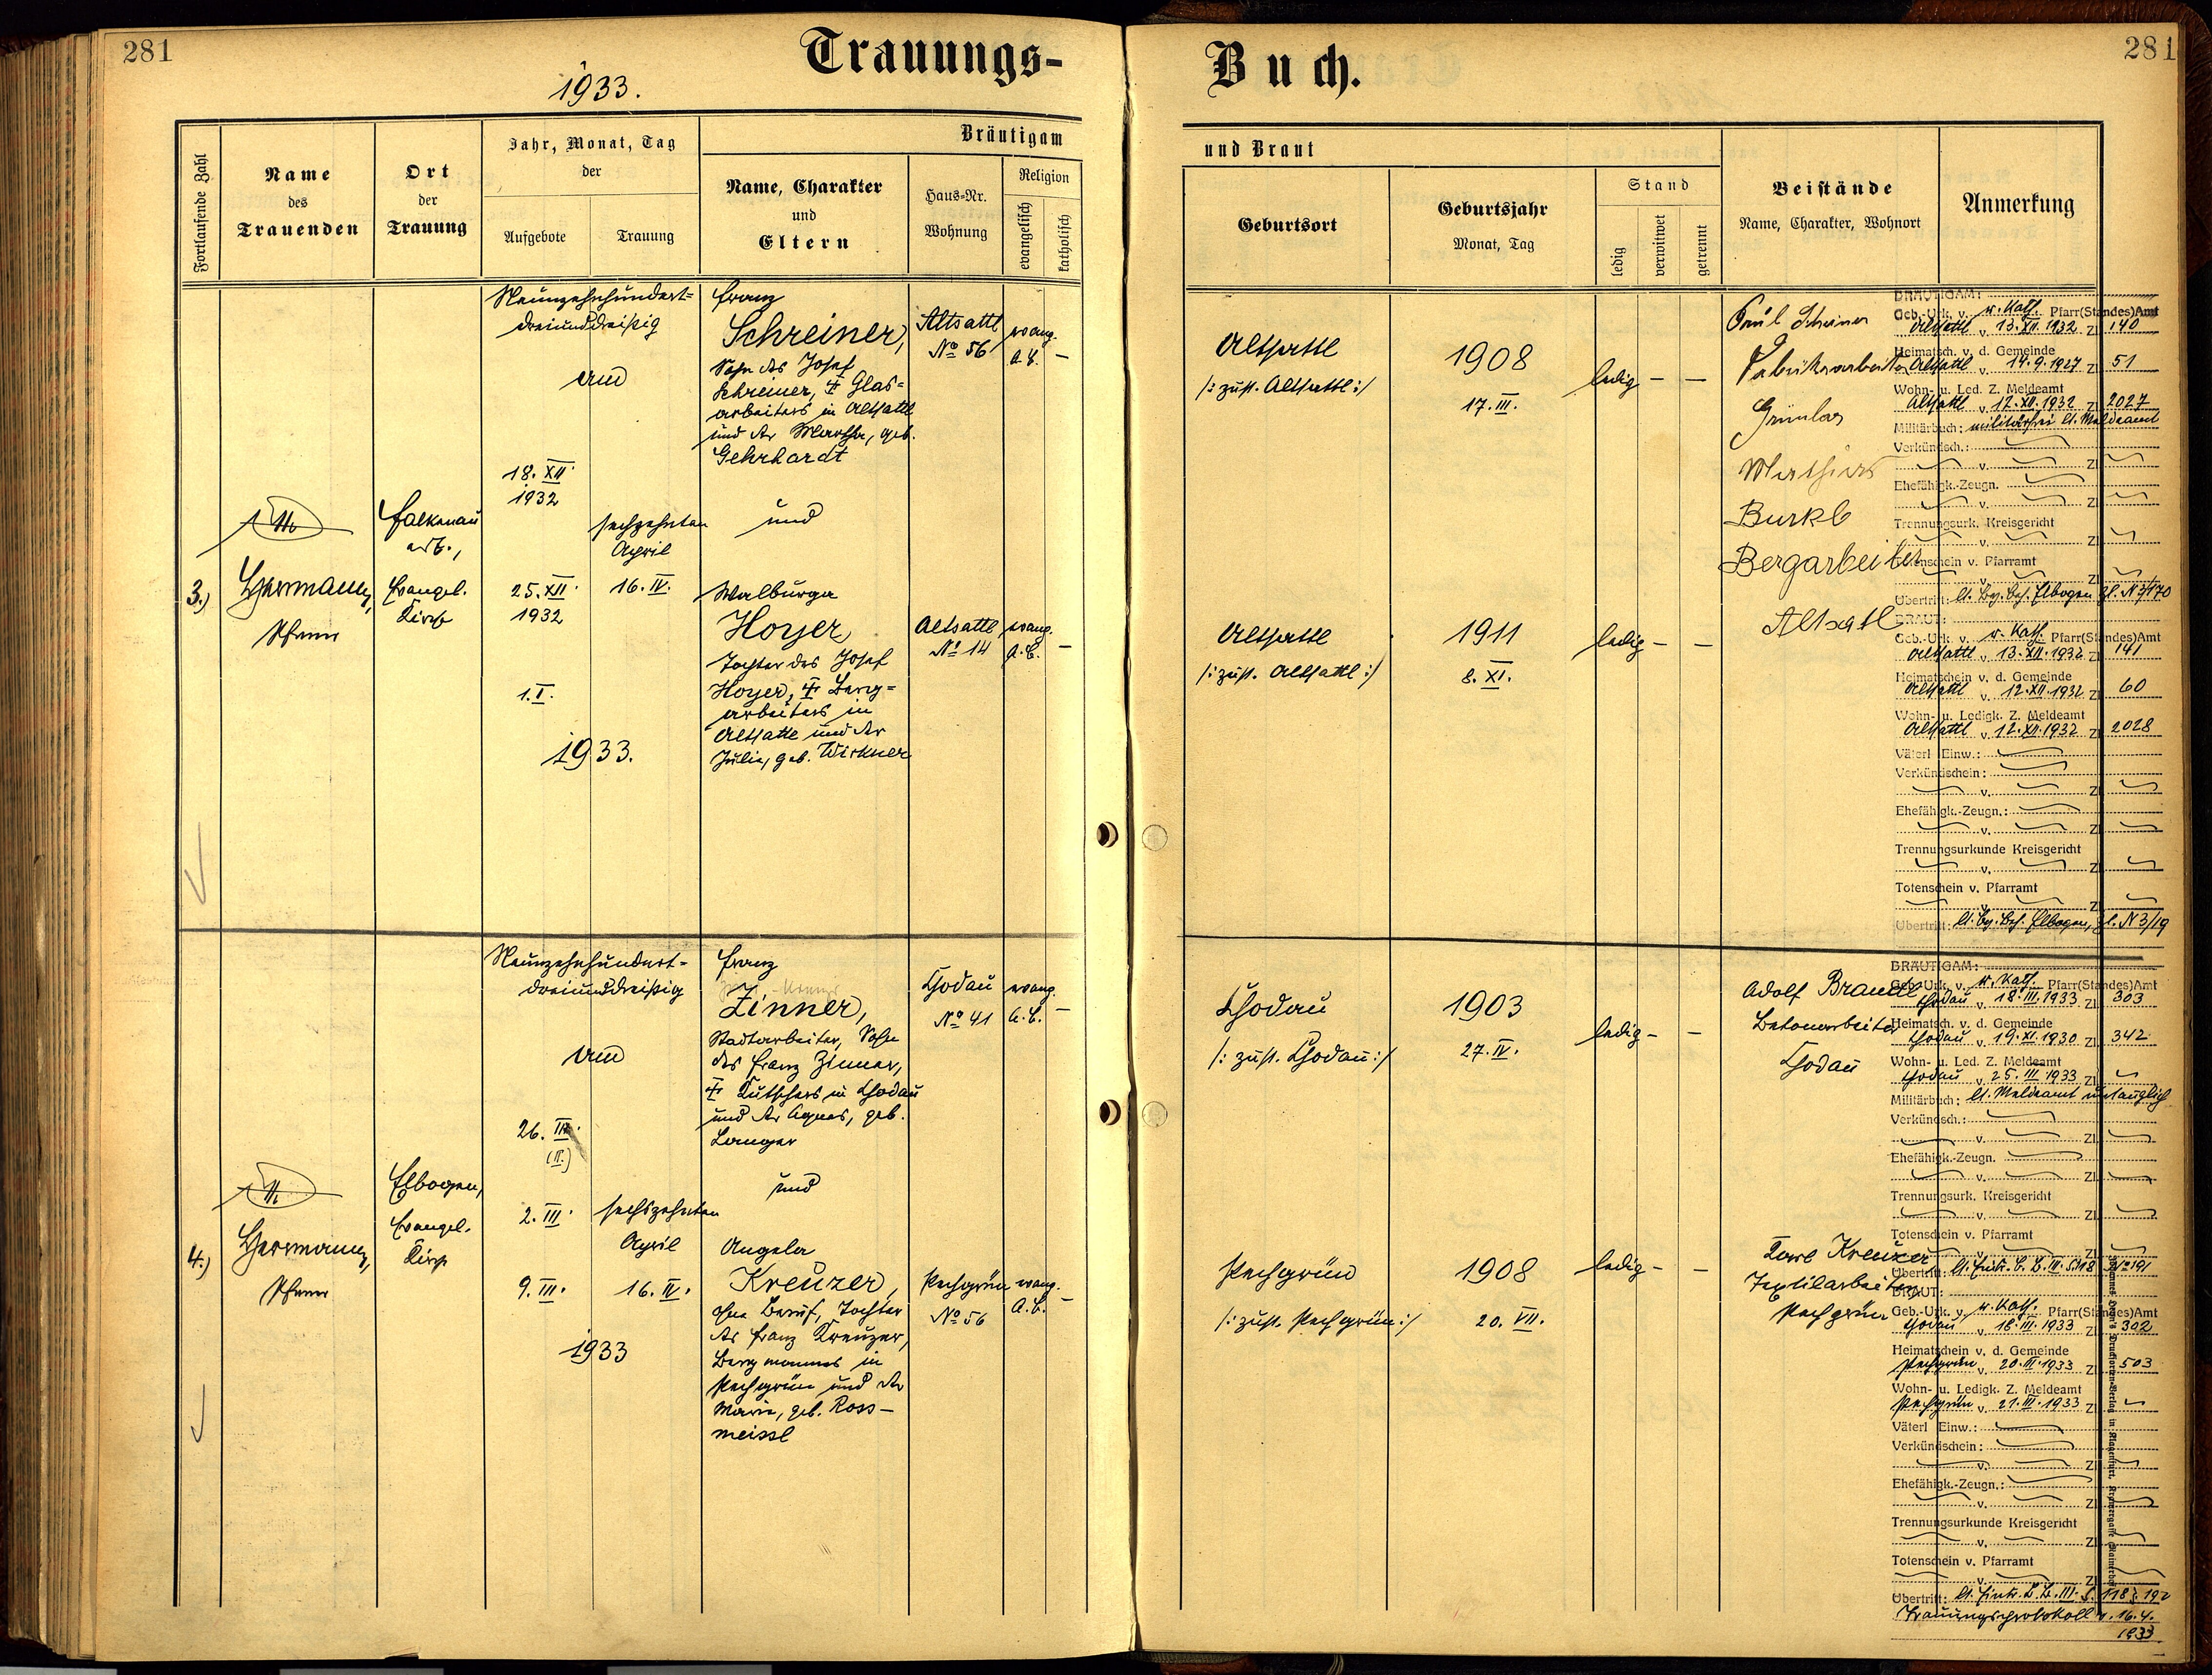 281
Trauungs-
1933.
Fortlaufende Zahl
Name
des
Trauenden
Ort
der
Trauung
Jahr, Monat, Tag
der
Aufgebote
Trauung
Bräutigam
Name, Charakter
und
Eltern
Haus-Nr.
Wohnung
Religion
evangelisch
katholisch
3.)
Herrmann,
Pfarrer
Falkenau
a/E.,
Evangel.
Kirche
Neunzehnhundert=
dreiunddreißig
am
18. XII.
1932
25. XII.
1932
1. I.
1933.
sechzehnten
April
16. IV.
Franz
Schreiner,
Sohn des Josef
Schreiner, Glas=
arbeiters in Altsattl
und der Martha, geb.
Gehrhardt
und
Walburga
Hoyer
Tochter des Josef
Hoyer, Berg=
arbeiters in
Altsattl und der
Julie, geb. Wirkner
Altsattl
No 56
evang.
A.B. —
Altsattl
No 14
evang.
A.B. —
4.)
Herrmann,
Pfarrer
Elbogen,
Evangel.
Kirche
Neunzehnhundert=
dreiunddreißig
am
26. III.
(II.)
2. III.
9. III.
1933
sechszehnten
April
16. IV.
Franz
Zinner,
Stadtarbeiter, Sohn
des Franz Zinner,
Kutschers in Chodau
und der Agnes, geb.
Langer
und
Angela
Kreuzer,
ohne Beruf, Tochter
des Franz Kreuzer,
Bergmannes in
Pechgrün und der
Marie, geb. Ross-
meissl
Chodau
No 41
evang.
A.B. —
Pechgrün
No 56
evang.
A.B. —
Buch.
281
und Braut
Geburtsort
Geburtsjahr
Monat, Tag
Stand
ledig
verwitwet
getrennt
Beistände
Name, Charakter, Wohnort
Anmerkung
Altsattl
/: zust. Altsattl :/
1908
17. III.
ledig — —
Altsattl
/: zust. Altsattl :/
1911
8. XI.
ledig — —
Paul Schreiner
Fabriksarbeiter
Grünlas
Mathias
Burkl
Bergarbeiter
Altsatl
BRÄUTIGAM:
Geb.-Urk. v. r. Kath. Pfarr(Standes)Amt
Altsattl v. 13. XII. 1932 Zl. 140
Heimatsch. v. d. Gemeinde
Altsattl v. 14. 9. 1927 Zl. 51
Wohn- u. Led. Z. Meldeamt
Altsattl v. 12. XII. 1932 Zl. 2027
Militärbuch: militärfrei lt. Meldeamt
Verkündsch.:
v. Zl.
Ehefähigk.-Zeugn.
v. Zl.
Trennungsurk. Kreisgericht
v. Zl.
Totenschein v. Pfarramt
v. Zl.
Übertritt: lt. Bez. Beh. Elbogen Zl. N 3/170
BRAUT:
Geb.-Urk. v. r. Kath. Pfarr(Standes)Amt
Altsattl v. 13. XII. 1932 Zl. 141
Heimatschein v. d. Gemeinde
Altsattl v. 12. XII. 1932 Zl. 60
Wohn- u. Ledigk. Z. Meldeamt
Altsattl v. 12. XII. 1932 Zl. 2028
Väterl. Einw.:
Verkündschein:
v. Zl.
Ehefähigk.-Zeugn.:
v. Zl.
Trennungsurkunde Kreisgericht
v. Zl.
Totenschein v. Pfarramt
v. Zl.
Übertritt: lt. Bez. Beh. Elbogen, Zl. N 3/19
Chodau
/: zust. Chodau :/
1903
27. IV.
ledig — —
Adolf Brandl
Betonarbeiter
Chodau
Pechgrün
/: zust. Pechgrün :/
1908
20. VII.
ledig — —
Karl Kreuzer
Textilarbeiter
Pechgrün
BRÄUTIGAM:
Geb.-Urk. v. r. Kath. Pfarr(Standes)Amt
Chodau v. 18. III. 1933 Zl. 303
Heimatsch. v. d. Gemeinde
Chodau v. 19. XI. 1930 Zl. 342
Wohn- u. Led. Z. Meldeamt
Chodau v. 25. III. 1933 Zl.
Militärbuch: lt. Meldeamt untauglich
Verkündsch.:
v. Zl.
Ehefähigk.-Zeugn.
v. Zl.
Trennungsurk. Kreisgericht
v. Zl.
Totenschein v. Pfarramt
v. Zl.
Übertritt: lt. Eintr. B. III. S. 118 No 191
BRAUT:
Geb.-Urk. v. r. Kath. Pfarr(Standes)Amt
Chodau v. 18. III. 1933 Zl. 302
Heimatschein v. d. Gemeinde
Pechgrün v. 20. III. 1933 Zl. 503
Wohn- u. Ledigk. Z. Meldeamt
Pechgrün v. 21. III. 1933 Zl.
Väterl. Einw.:
Verkündschein:
v. Zl.
Ehefähigk.-Zeugn.:
v. Zl.
Trennungsurkunde Kreisgericht
v. Zl.
Totenschein v. Pfarramt
v. Zl.
Übertritt: lt. Eintr. III. S. 118 192
Trauungsprotokoll v. 16. 4.
1933
Drucksorten-Verlag in Klagenfurt, Kramergasse